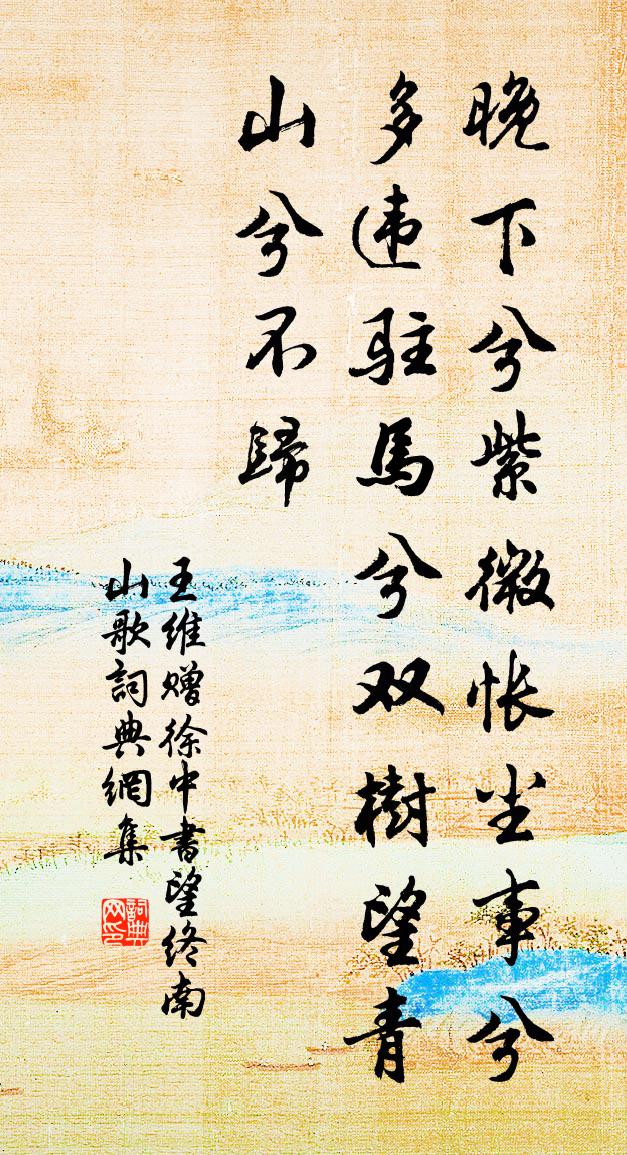 晚下兮紫微怅尘事兮
多违驻馬兮双樹望青
山兮不歸
王维赠徐中書望终南
山歌詞典網集
詞典
网印